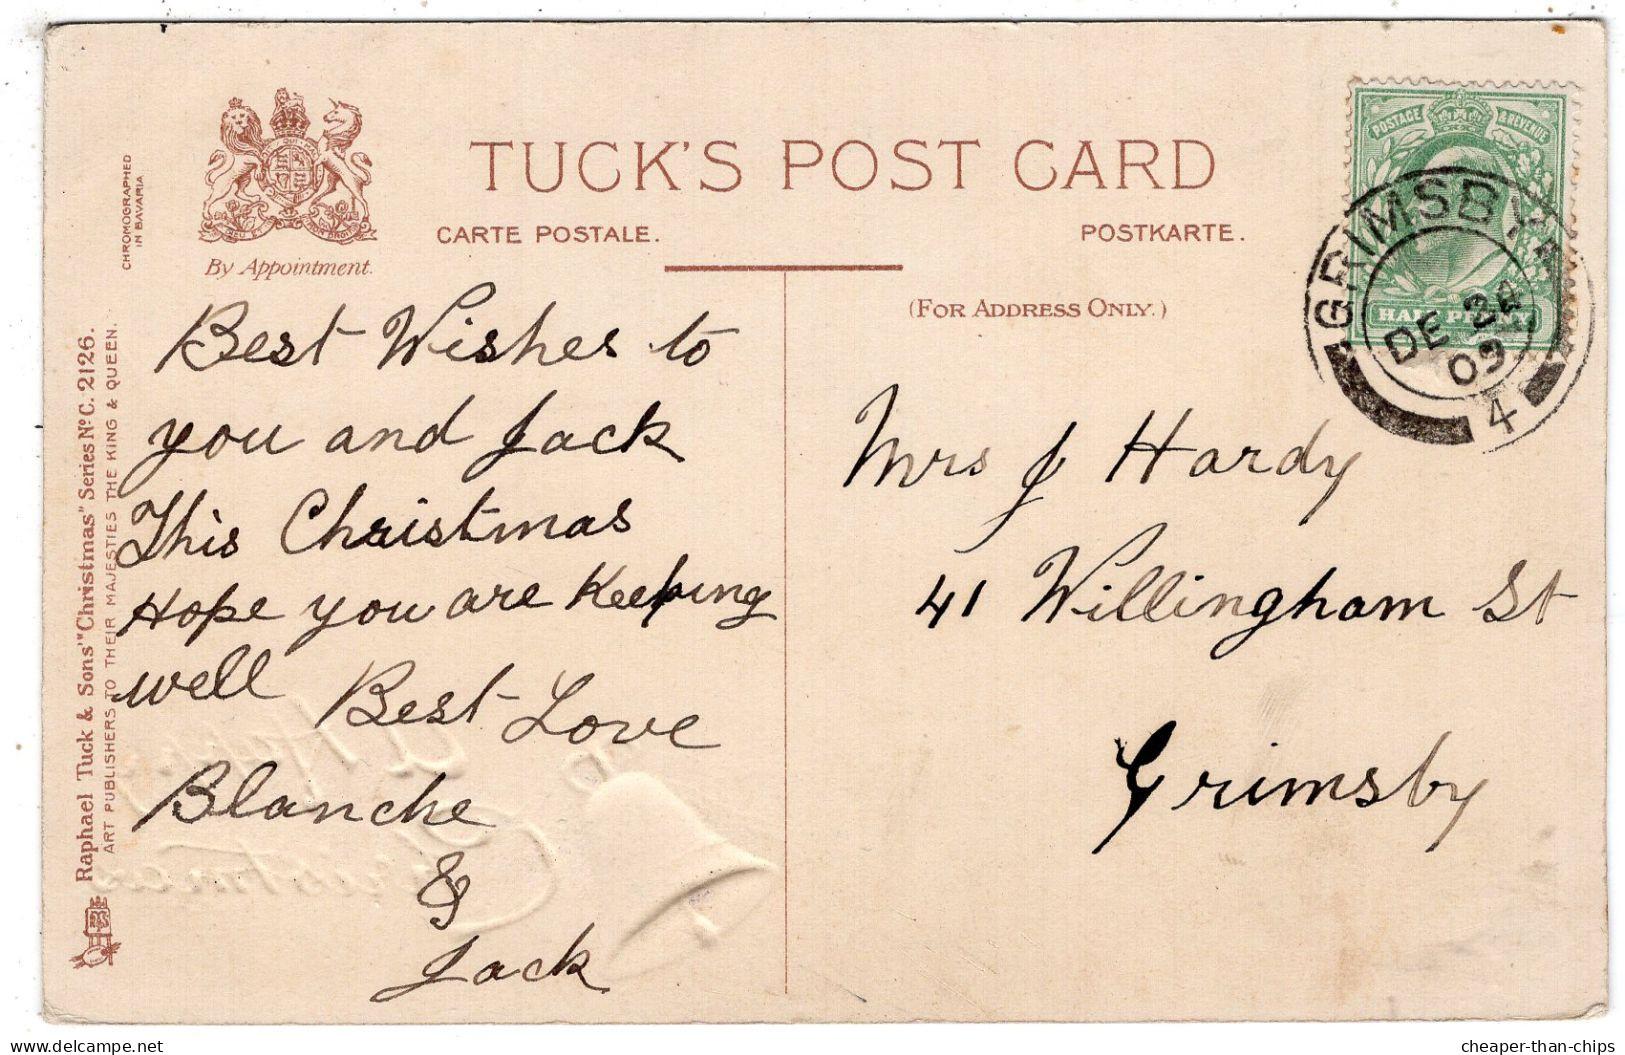 TUCK'S POST CARD
CARTE POSTALE.
POSTKARTE.
By Appointment.
CHROMOGRAPHED
IN BAVARIA
(FOR ADDRESS ONLY.)
POSTAGE & REVENUE
HALF PENNY
GRIMSBY
DE 24
09
4
Raphael Tuck & Sons' "Christmas" Series No C. 2126.
ART PUBLISHERS TO THEIR MAJESTIES THE KING & QUEEN.
Best Wishes to
you and Jack
This Christmas
Hope you are Keeping
well Best Love
Blanche
&
Jack
Mrs J Hardy
41 Willingham St
Grimsby
cheaper-than-chips